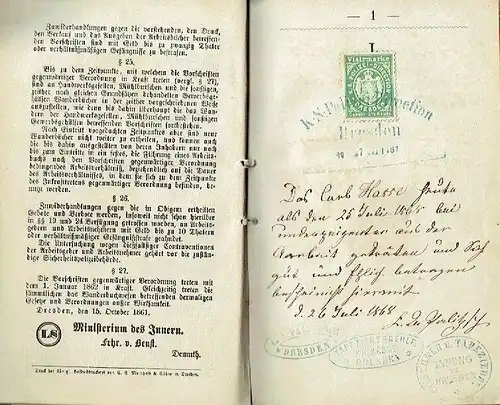 Zuwiderhandlungen gegen die vorstehenden, den Druck,
den Verkauf und das Ausgeben der Arbeitsbücher betreffen-
den Vorschriften sind mit Geld bis zu zwanzig Thaler
oder verhältnißmäßigem Gefängniß zu bestrafen.
§ 25.
Bis zu dem Zeitpunkte, mit welchem die Vorschriften
gegenwärtiger Verordnung in Kraft treten (vergl. § 27),
sind an Handwerksgesellen, Mühlburschen und die sonstigen,
zeither nach gleichen Grundsätzen behandelten Gewerbsge-
hülfen Wanderbücher in der zeither vorgeschriebenen Weise
auszustellen, wie denn bis dahin überhaupt die das Wan-
dern der Handwerksgesellen, Mühlburschen und sonstigen
Gewerbsgehülfen betreffenden Vorschriften fortbestehen.
Nach Eintritt vorgedachten Zeitpunktes aber sind neue
Wanderbücher nicht weiter zu ertheilen, und können auch
die bis dahin ausgestellten von deren Inhabern nur noch
bis zum Eintritt in ein festes, die Führung eines Arbeits-
buchs nach den Vorschriften gegenwärtiger Verordnung
bedingendes Arbeitsverhältniß, beziehentlich auf die Dauer
des Arbeitsverhältnisses, in dem sie sich zu dem Zeitpunkte
des Inkrafttretens gegenwärtiger Verordnung befinden, be-
nutzt werden.
§ 26.
Zuwiderhandlungen gegen die in Obigem ertheilten
Gebote und Verbote werden, insoweit nicht schon hierüber
in §§ 19 und 24 Verfügung getroffen worden, an Arbeitge-
bern und Arbeitnehmern mit Geld bis zu 5 Thaler oder
oder verhältnißmäßiger Gefängnißstrafe geahndet.
Die Untersuchung wegen dießfallsiger Contraventionen
der Arbeitgeber und Arbeitnehmer gehört vor die zustän-
dige Sicherheitspolizeibehörde.
§ 27.
Die Vorschriften gegenwärtiger Verordnung treten mit
dem 1. Januar 1862 in Kraft. Gleichzeitig treten die
sämmtlichen das Wanderbuchwesen betreffenden dermaligen
Gesetze und Verordnungen außer Wirksamkeit.
Dresden, den 15. October 1861.
LS
Ministerium des Innern.
Frhr. v. Beust.
Demuth.
— 1 —
I.
Visirmarke
Dresden
Das Carl Hasse heute
als den 25 Juli 1868 bei
aus der
Arbeit getreten und sich
gut und betragen
bescheinigt hiermit
d. 26 Juli 1868
DRESDEN
DRESDEN
INNUNG
ZU
DRESDEN